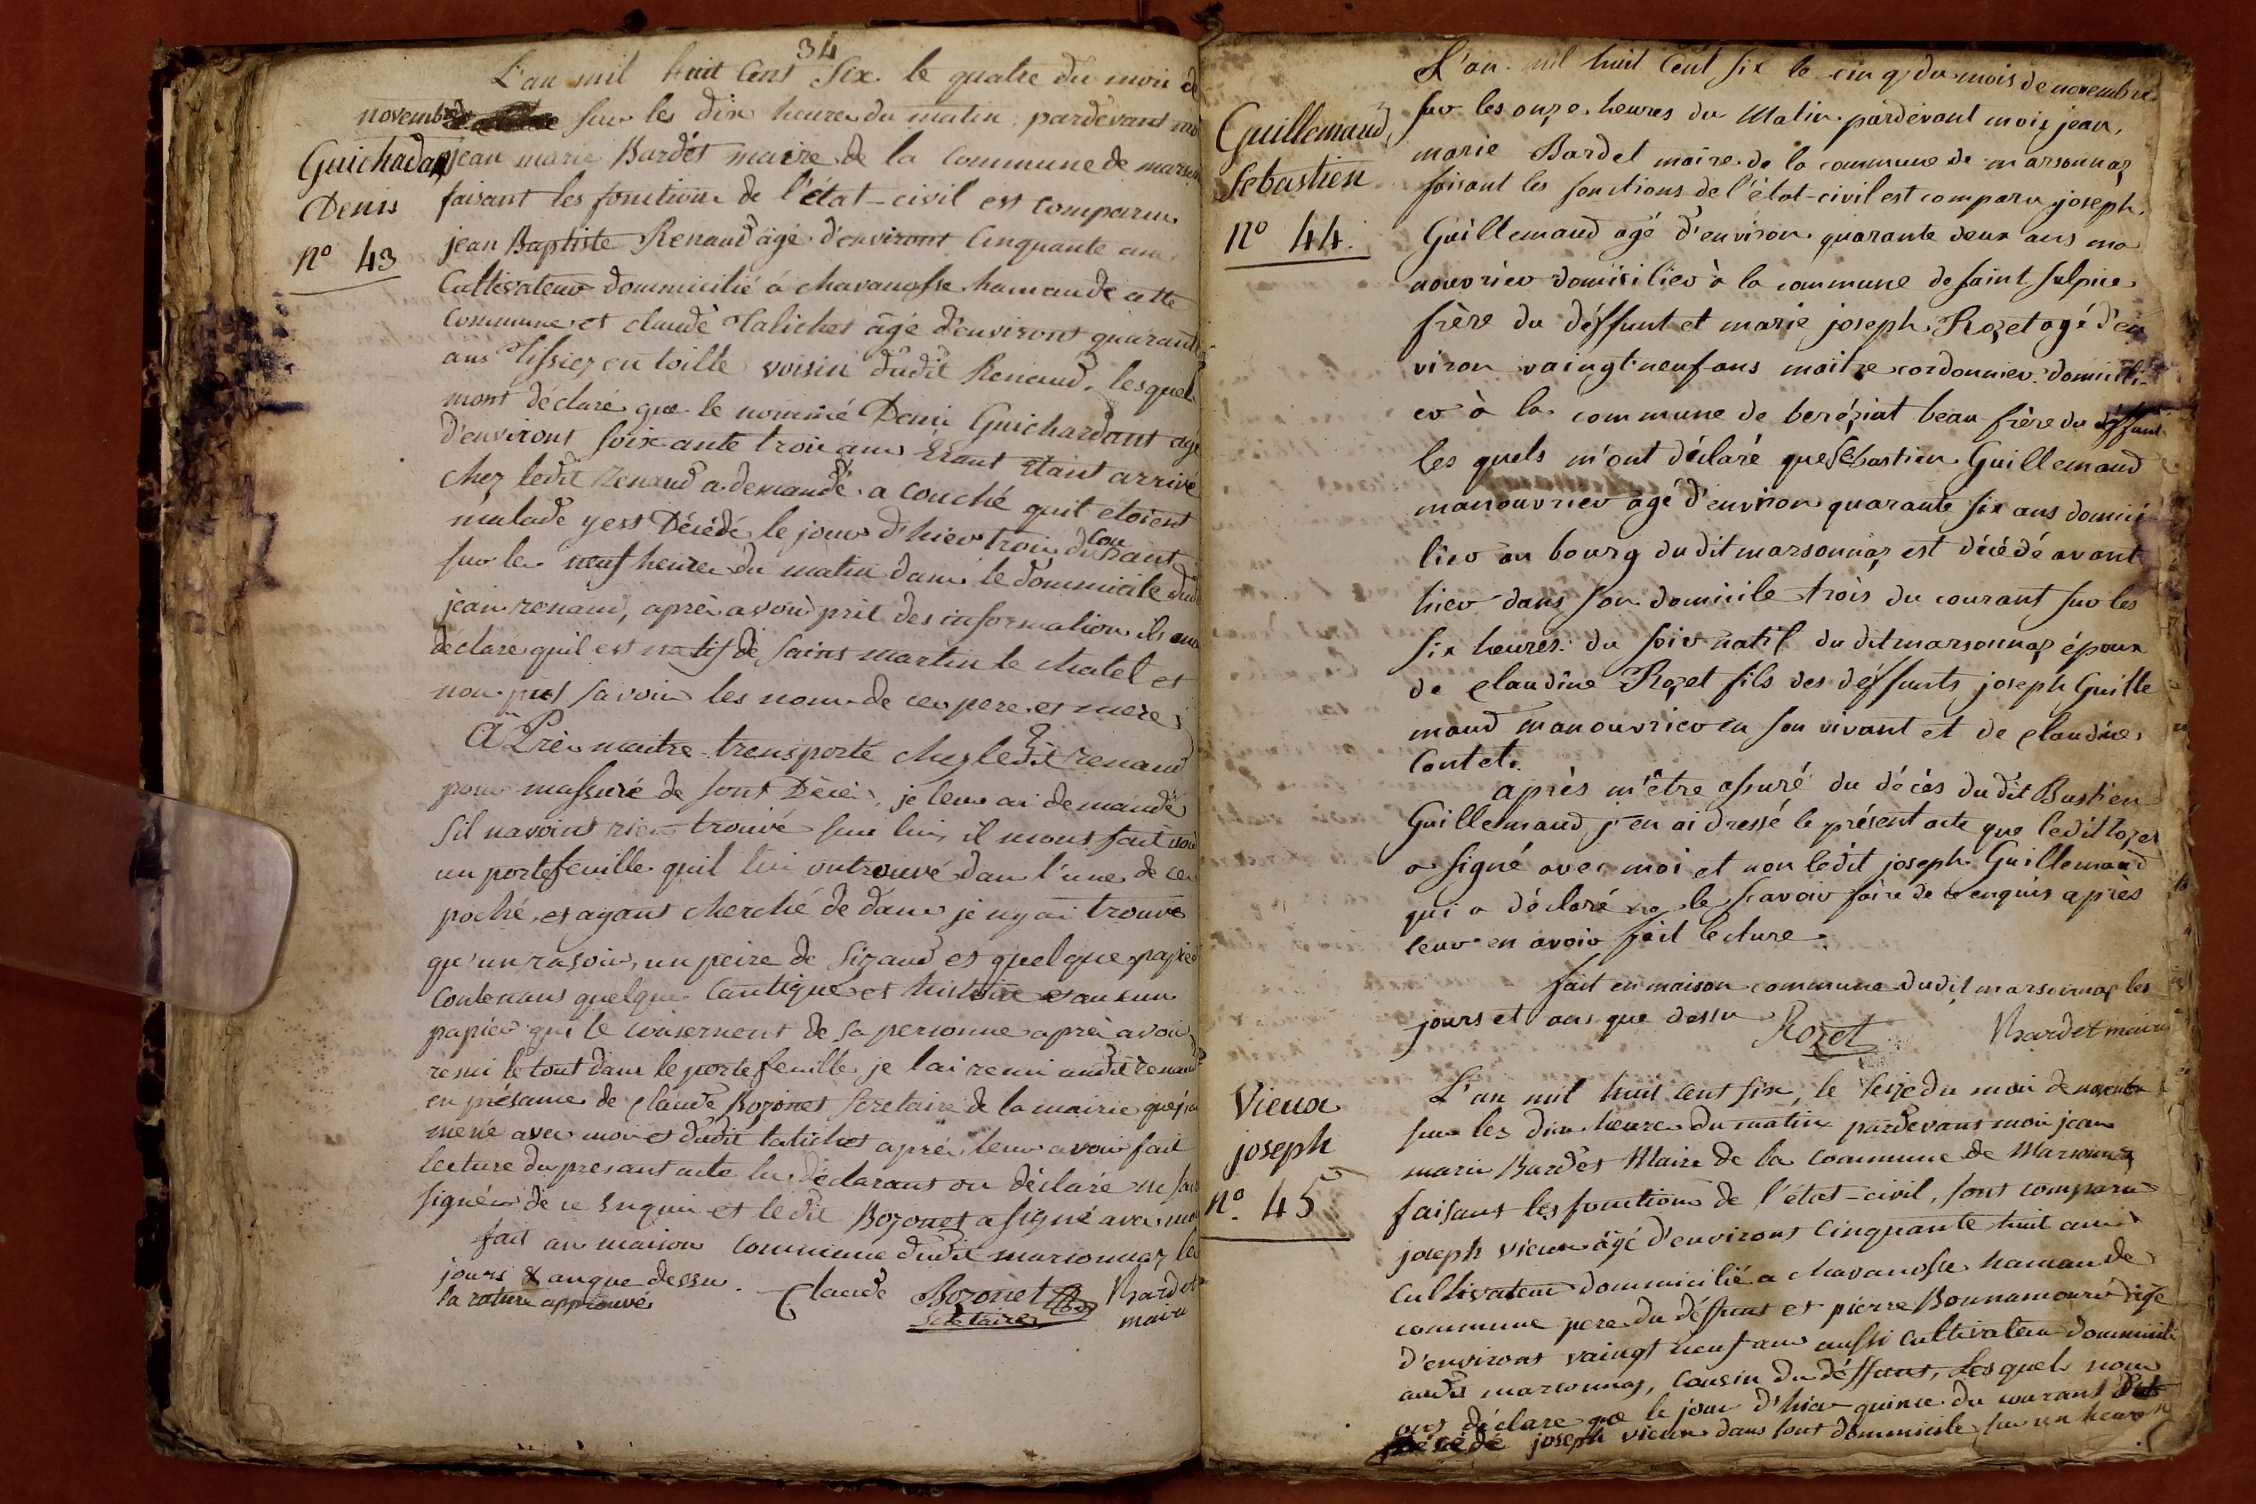 34
L'an mil huit Cens Six le quatre du mois de
novembre sur les dix heures du matin pardevant moi
Guichadan
Denis
nº 43
jean marie Bardet maire de la Commune de marson
faisant les fonctions de l'état-civil est comparus
jean Baptiste Renaud âgé d'environt Cinquante ans
Cultivateur dommicilié á chavanosse hamau de cette
Commune et claude Talichet âgé d'environt quarante
ans Tissiez en toille voisin dudit Renaud, lesquels
mont déclaré que le nommé Denis Guichardant agé
d'environt soixante trois ans Etant Etant arrivé
chez ledit Renaud a demandé a couché quil etoient
malade y est Décédé le jour d'hier trois du Courant
sur les neuf heures du matin dans le dommicile dud
jean renaud, après avoir prit des information ils ont
déclaré quil est natif de saint martin le chatel et
non put savoir les nom de ces pere et mere
Après maitre transporté chez ledit renaud
pour massuré de sont Décès, je leur ai demandé
Sil navoint rien trouvé sur lui, il mont fait voir
un portefeuille quil lui ont trouvé dans l'une de ces
poché, et ayant cherché de dans je ny ai trouvé
qu'un rasoir, un peire de Sizaud et quelque papier
Contenant quelque Cantique et histoire et aucun
papier qui le consernent de sa personne après avoir
remi le tout dans le portefeuille je l'ai remi audit renaud
en présance de Claude Bozonet Secretaire de la mairie que j'ai
mené avec moi et dudit talichet après leur avoir fait
lecture du presant acte les déclarant on déclaré ne savoir
signé de ce Enquis et ledit Bozonet a signé avec moi
fait an maison Commune dudit marsonnaz les
jours & an que dessu. Claude Bozonet Bardet
la rature approuvé Secretaire maire
L'an mil huit Cent six le cinq du mois de novembre
Guillemaud
Sebastien
nº 44.
sur les onze heures du Matin pardevant moi jean
marie Bardet maire de la commune de marsonnaz
faisant les fonctions de l'état-civil est comparu joseph
Guillemaud agé d'environ quarante deux ans ma
nouvrier domicilier à la commune de saint sulpice
frère du déffunt et marie joseph Rozet agé d'en
viron vaingt neuf ans maitre cordonnier domicili
er à la commune de beréziat beau frère du déffunt
les quels m'ont déclaré que Sebastien Guillemaud
manouvrier agé d'environ quarante six ans domici
lier au bourg dudit marsonnaz est décédé avant
hier dans son domicile trois du courant sur les
six heures du soir natif du dit marsonnaz époux
de Claudine Rozet fils des déffunts joseph Guille
maud manouvrier en son vivant et de Claudine
Contet.
après m'être assuré du décès dudit Bastien
Guillemaud, j'en ai dressé le présent acte que ledit Rozet
a signé avec moi et non ledit joseph Guillemaud
qui a déclaré ne le sçavoir faire de ce enquis après
leur en avoir fait lecture.
fait en maison commune dudit marsonnaz les
jours et ans que dessu
Rozet Bardet maire
Vieux
joseph
nº. 45
L'an mil huit cent six, le seize du mois de novembre
sur les dix heures du matin pardevant moi jean
marie Bardet Maire de la Commune de Marsonnaz
faisant les fonctions de l'état-civil, sont comparu
joseph vieux âgé d'environt Cinquante huit ans
Cultivateur dommicilié a chavanosse hamau de
commune pere du déffunt et pierre Bonnamour âgé
d'environt vaingt neuf ans aussi Cultivateur dommicili
audit marsonnaz, Cousin du déffunt, Lesquels nous
ont déclare que le jour d'hier quinze du courant Est
décédé joseph vieux dans sont dommicile sur un heure